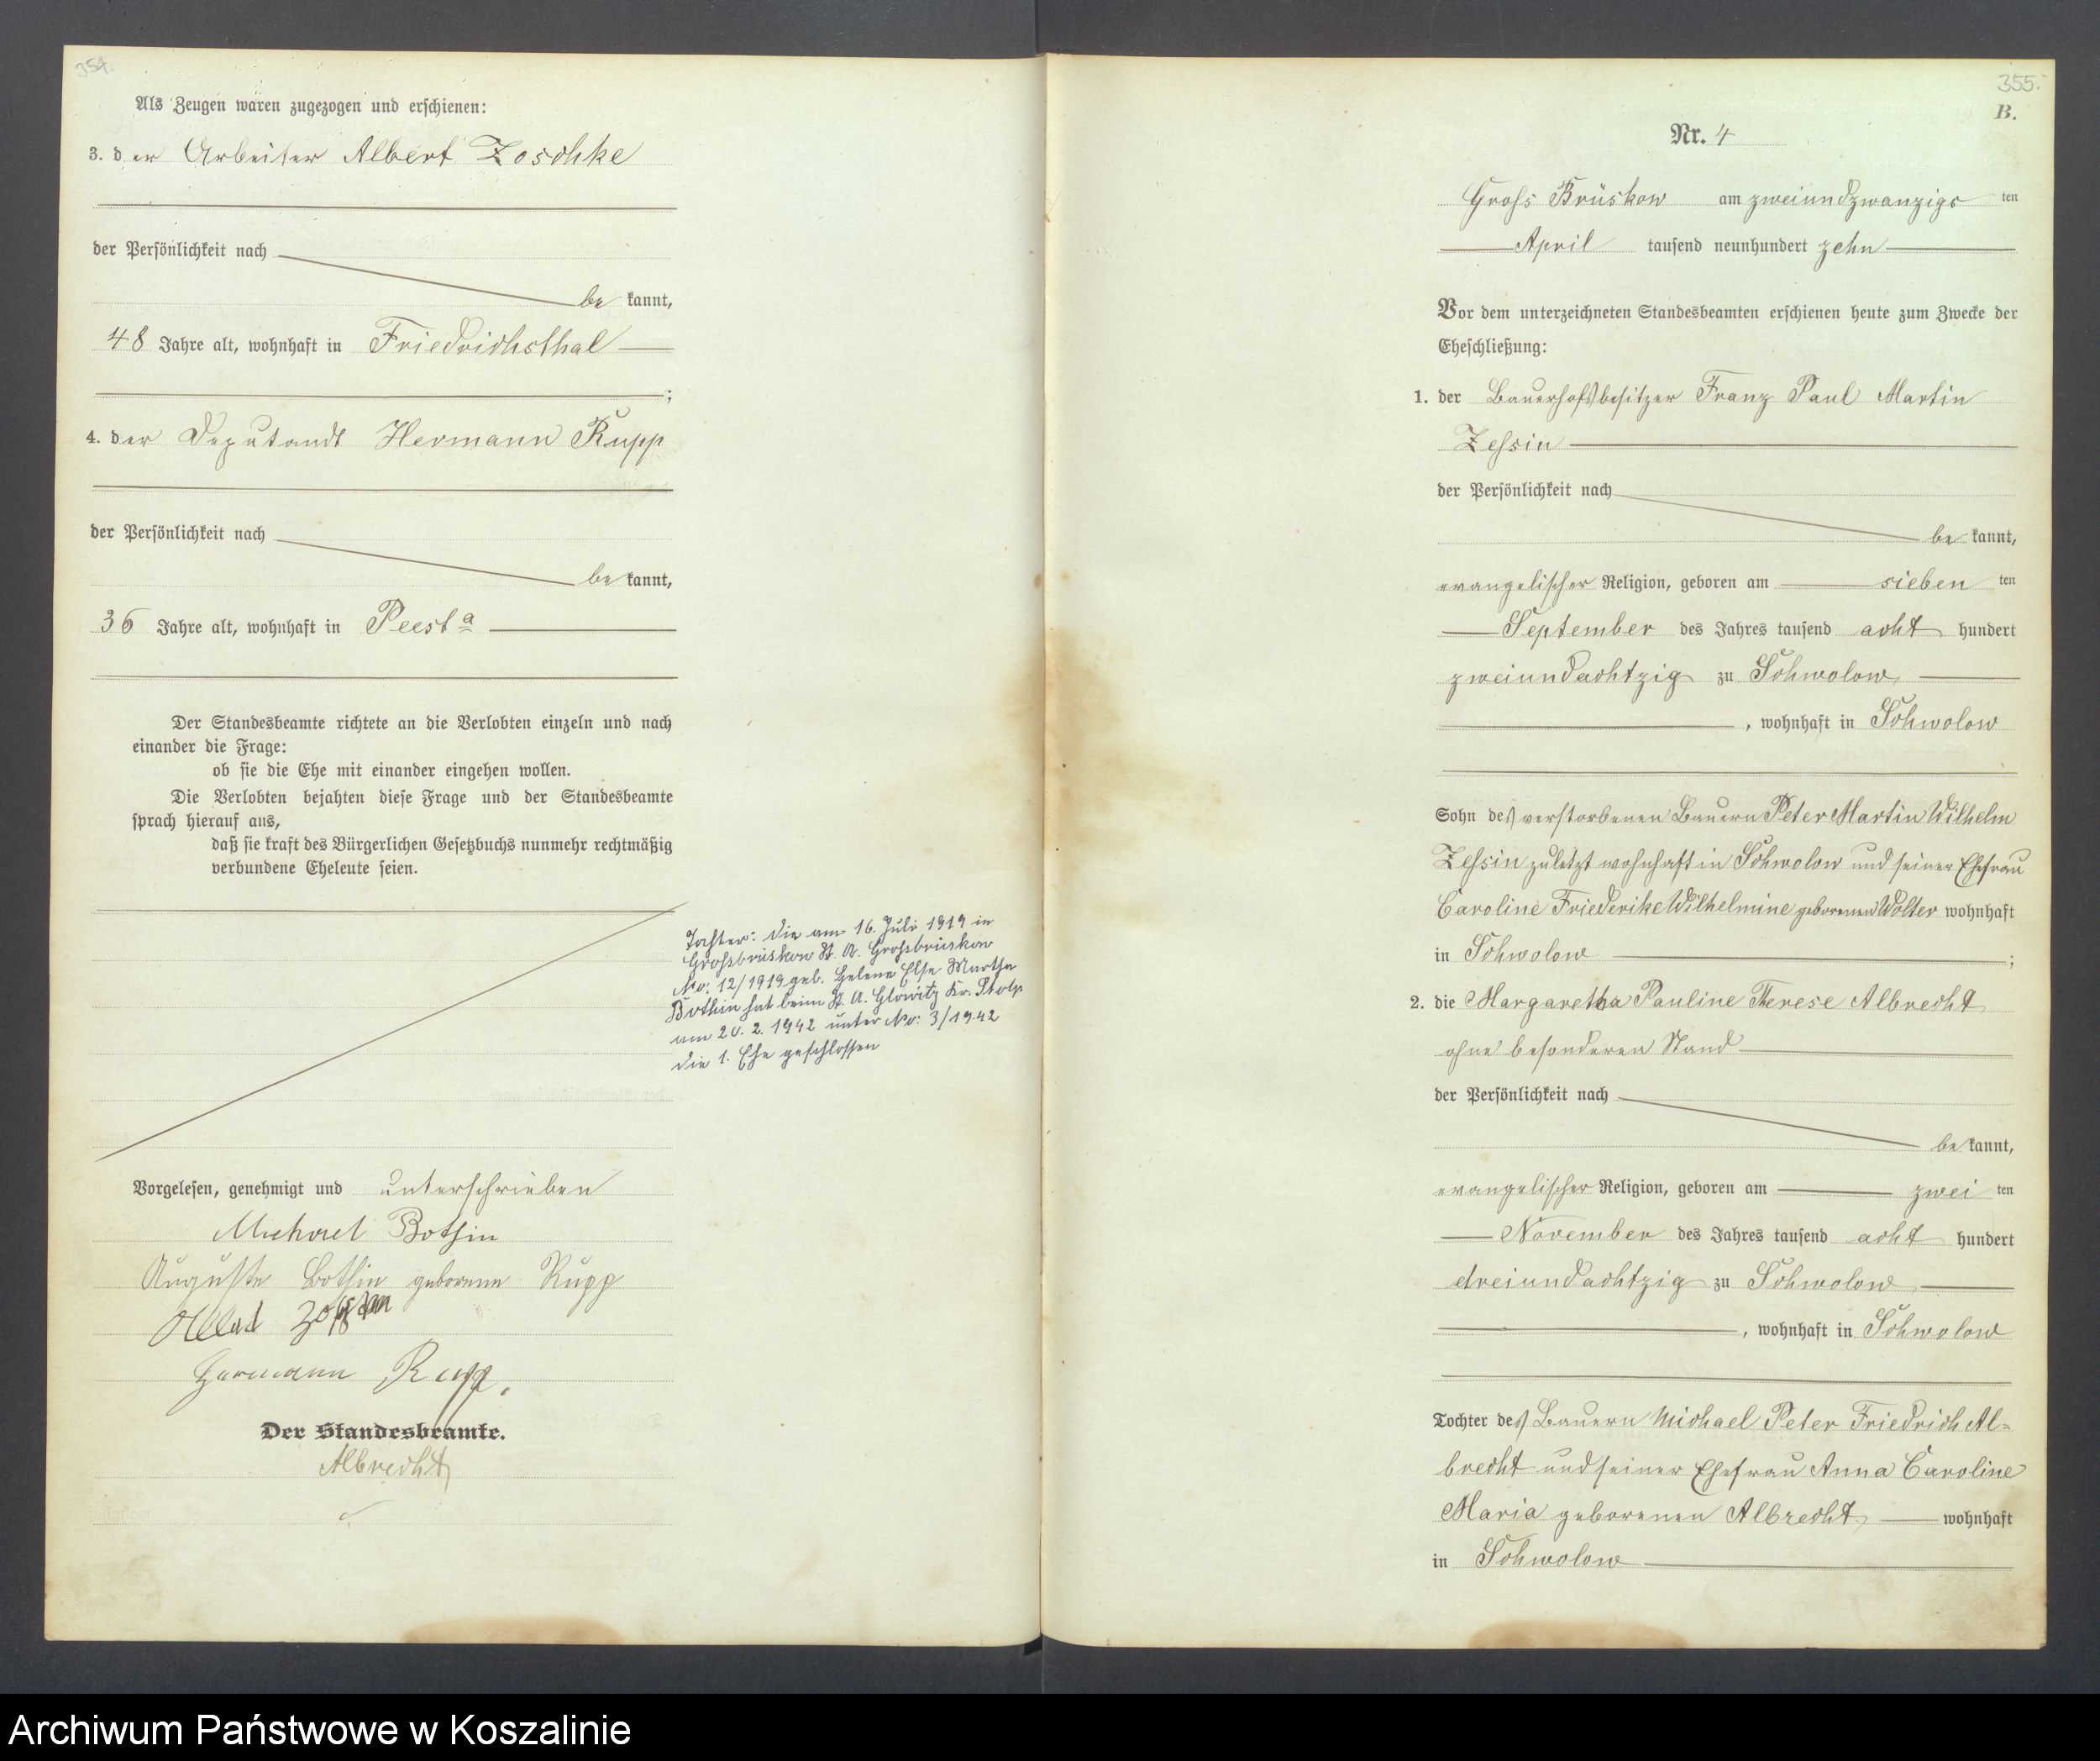 354.
Als Zeugen waren zugezogen und erschienen:
3. der Arbeiter Albert Zoschke
der Persönlichkeit nach
bekannt,
48 Jahre alt, wohnhaft in Friedrichsthal
;
4. der Deputandt Hermann Rupp
der Persönlichkeit nach
bekannt,
36 Jahre alt, wohnhaft in Peest a
Der Standesbeamte richtete an die Verlobten einzeln und nach
einander die Frage:
ob sie die Ehe mit einander eingehen wollen.
Die Verlobten bejahten diese Frage und der Standesbeamte
sprach hierauf aus,
daß sie kraft des Bürgerlichen Gesetzbuchs nunmehr rechtmäßig
verbundene Eheleute seien.
Tochter: die am 16. Juli 1919 in
Großbrüskow St. A. Großbrüskow
No: 12/1919 geb. Helene Else Martha
Bothin hat beim St. A. Glowitz Kr. Stolp
am 20. 2. 1942 unter No: 3/1942
die 1. Ehe geschlossen
Vorgelesen, genehmigt und unterschrieben
Michael Bothin
Auguste Bothin geborene Rupp
Hermann Rupp.
Der Standesbeamte.
Albrecht
355.
B.
Nr. 4
Gross Brüskow am zweiundzwanzigsten
April tausend neunhundert zehn
Vor dem unterzeichneten Standesbeamten erschienen heute zum Zwecke der
Eheschließung:
1. der Bauerhofsbesitzer Franz Paul Martin
Zessin
der Persönlichkeit nach
bekannt,
evangelischer Religion, geboren am siebenten
September des Jahres tausend acht hundert
zweiundachtzig zu Schwolow
, wohnhaft in Schwolow
Sohn des verstorbenen Bauern Peter Martin Wilhelm
Zessin zuletzt wohnhaft in Schwolow und seiner Ehefrau
Caroline Friederike Wilhelmine geborenen Wolter wohnhaft
in Schwolow ;
2. die Margaretha Pauline Therese Albrecht
ohne besonderen Stand
der Persönlichkeit nach
bekannt,
evangelischer Religion, geboren am zweiten
November des Jahres tausend acht hundert
dreiundachtzig zu Schwolow
, wohnhaft in Schwolow
Tochter des Bauern Michael Peter Friedrich Al=
brecht und seiner Ehefrau Anna Caroline
Maria geborenen Albrecht wohnhaft
in Schwolow
Archiwum Państwowe w Koszalinie